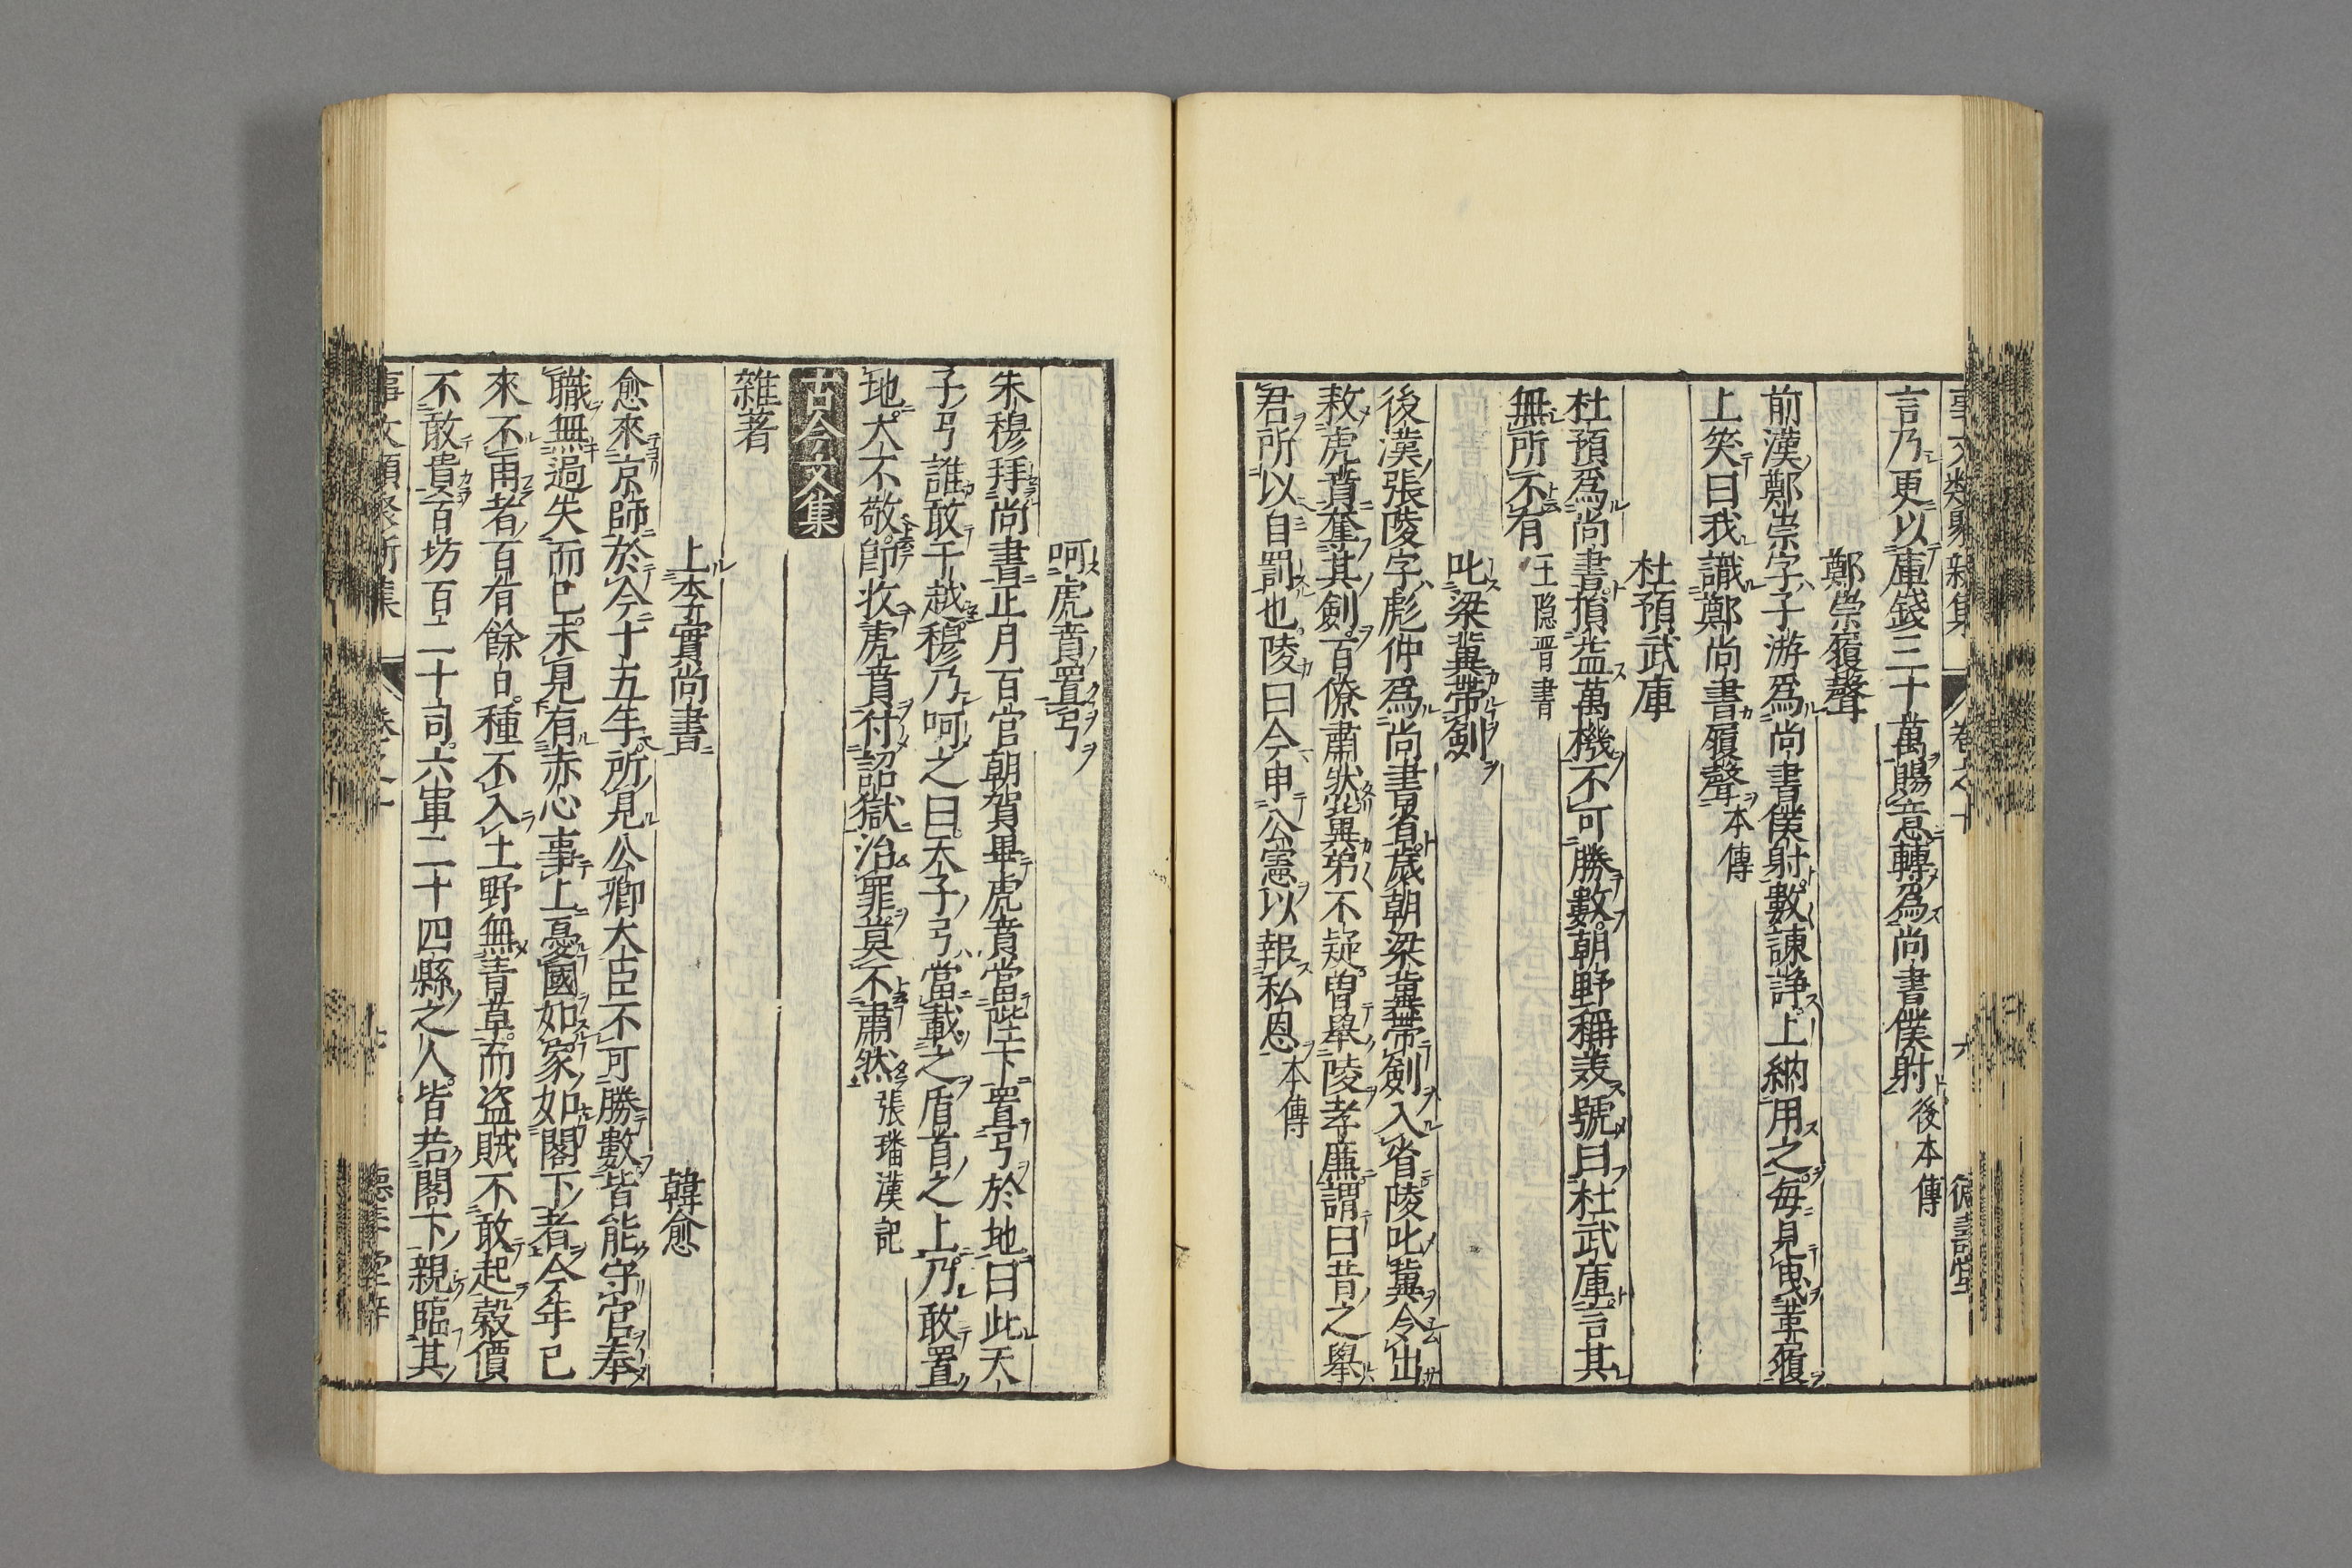 言乃更以庫錢三十萬賜意轉爲尚書僕射後本傳
鄭崇履聲
前漢鄭崇字子游爲尚書僕射數諫諍上納用之每見曳革履
上笑曰我識鄭尚書履聲本傳
杜預武庫
杜預爲尚書損益萬機不可勝數朝野稱美號曰杜武庫言其
無所不有王隐晋書
叱梁冀帶劍
後漢張陵字彪仲爲尚書省歲朝梁冀帶劍入省陵叱冀令出
敕虎賁奪其劍百僚肅然冀弟不疑曽舉陵孝廉謂曰昔之舉
君所以自罰也陵曰今申公憲以報私恩本傳
呵虎賁置弓
朱穆拜尚書正月百官朝賀畢虎賁當陛下置弓於地曰此天
子弓誰敢干越穆乃呵之曰天子弓當載之盾首之上乃敢置
地大不敬卽收虎賁付詔獄治罪莫不肅然張璠漢記
古今文集
雜著
上李實尚書 韓愈
愈來京師於今十五年所見公卿大臣不可勝數皆能守官奉
職無過失而已未見有赤心事上憂國如家如閣下者今年已
來不雨者百有餘日種不入土野無青草而盗賊不敢起穀價
不敢貴百坊百二十司六軍二十四縣之人皆若閣下親臨其